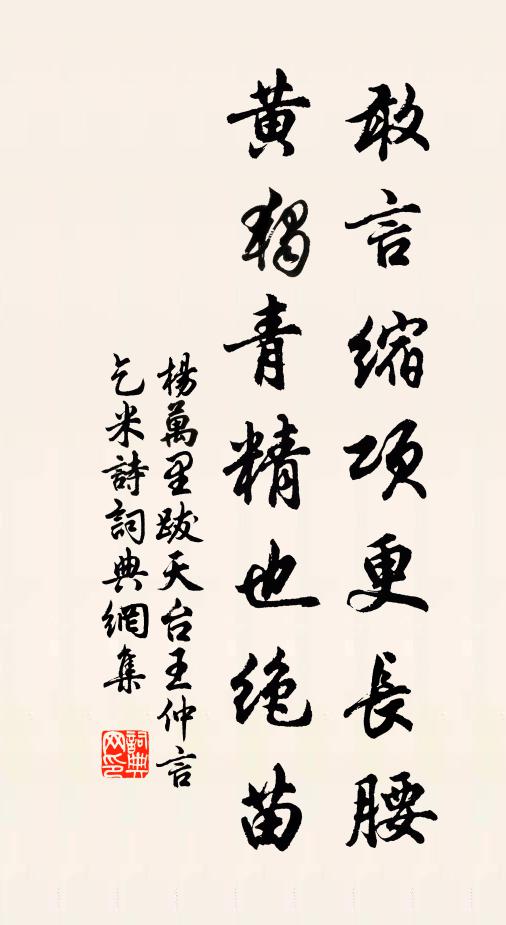 敢言縮项更長腰
黄獨青精也绝苗
楊萬里跋天台王仲言
乞米詩詞典網集
詞典
网印